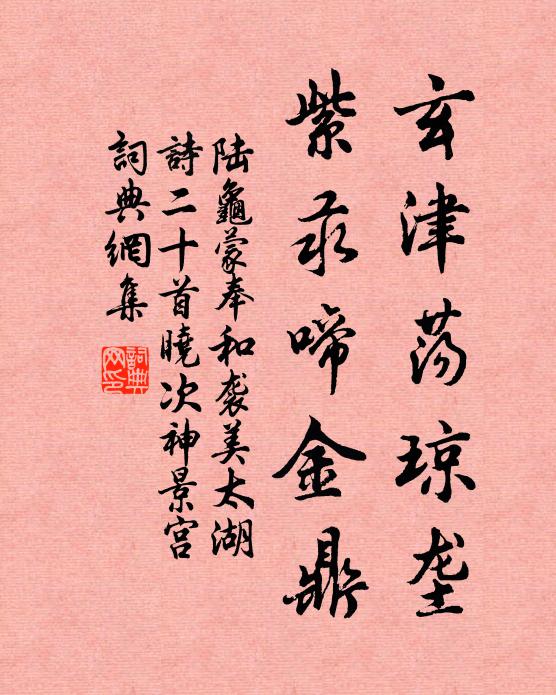 玄津荡琼垄
紫汞啼金鼎
陆龜蒙奉和袭美太湖
詩二十首曉次神景宫
詞典網集
詞典
网印